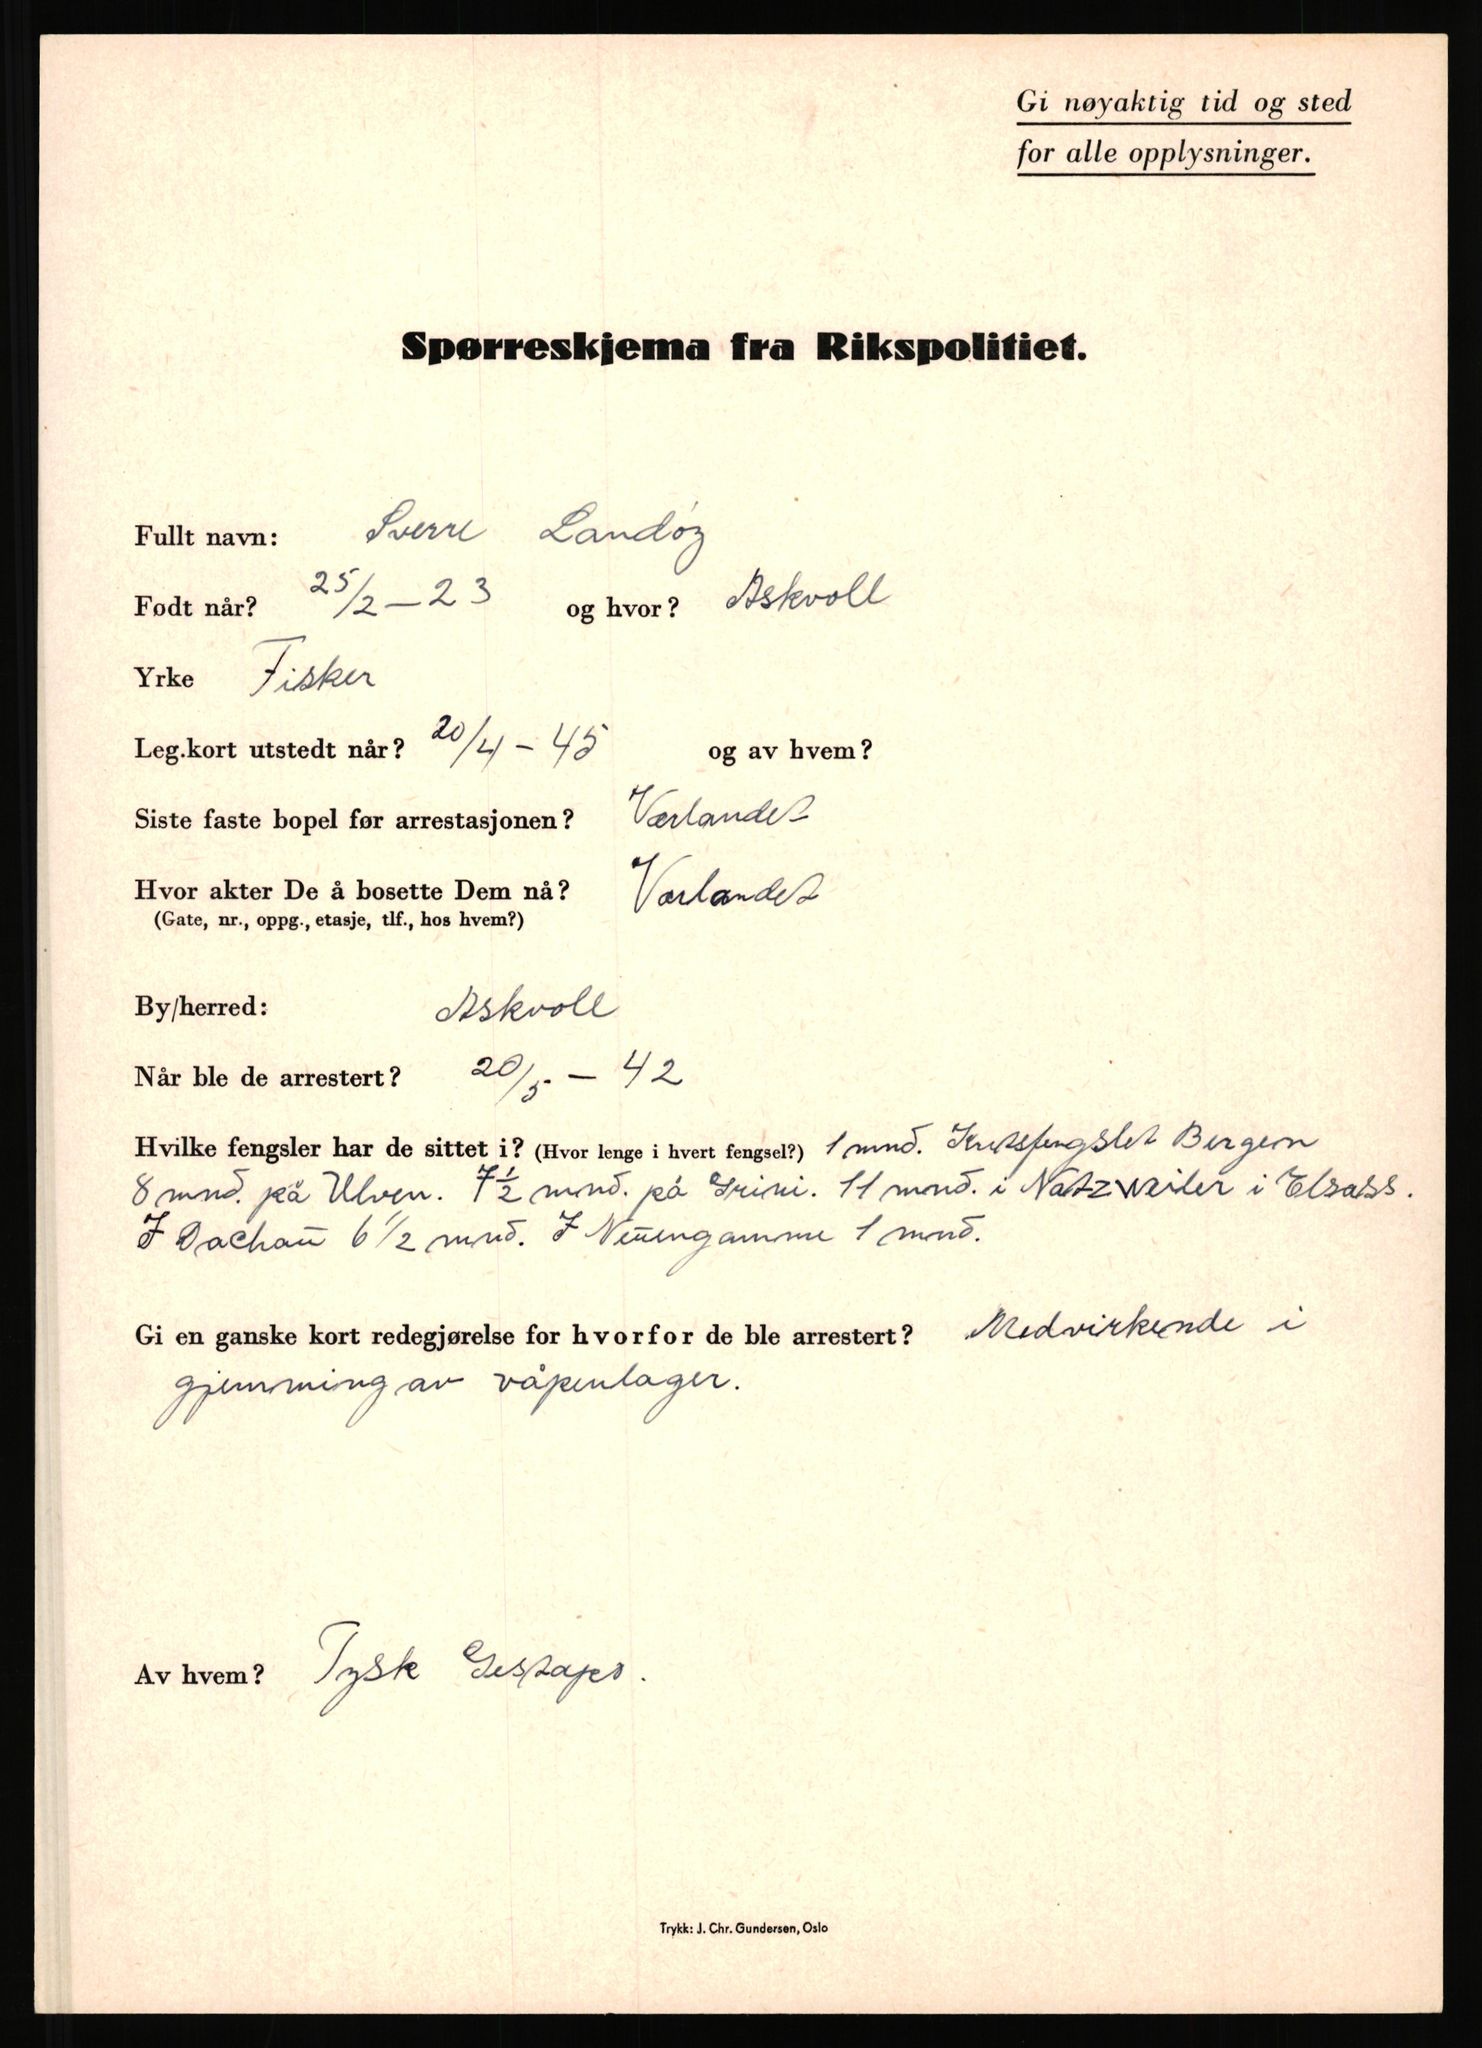 Gi nøyaktig tid og sted
for alle opplysninger.
Spørreskjema fra Rikspolitiet.
Fullt navn: Sverre Landøy
Født når? 25/2 – 23 og hvor? Askvoll
Yrke Fisker
Leg.kort utstedt når? 20/4 – 45 og av hvem?
Siste faste bopel før arrestasjonen? Værlandet
Hvor akter De å bosette Dem nå? Værlandet
(Gate, nr., oppg., etasje, tlf., hos hvem?)
By/herred: Askvoll
Når ble de arrestert? 20/5 – 42
Hvilke fengsler har de sittet i? (Hvor lenge i hvert fengsel?) 1 mnd. Kretsfengslet Bergen
8 mnd. på Ulven. 7 1/2 mnd. på Grini. 11 mnd. i Natzweiler i Elsass.
I Dachau 6 1/2 mnd. I Neuengamme 1 mnd.
Gi en ganske kort redegjørelse for hvorfor de ble arrestert? Medvirkende i
gjemming av våpenlager.
Av hvem? Tysk Gestapo.
Trykk: J. Chr. Gundersen, Oslo